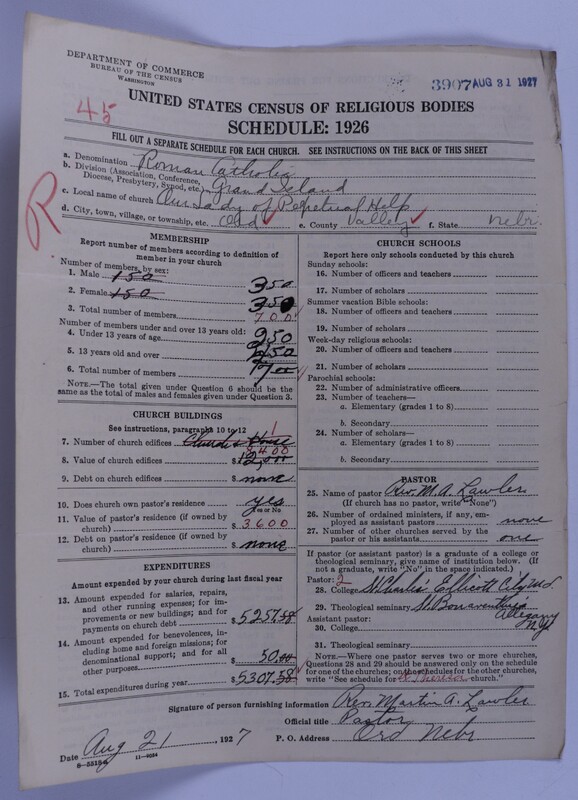 DEPARTMENT OF COMMERCE
BUREAU OF THE CENSUS
WASHINGTON
3907 AUG 31 1927
45
UNITED STATES CENSUS OF RELIGIOUS BODIES
SCHEDULE: 1926
FILL OUT A SEPARATE SCHEDULE FOR EACH CHURCH. SEE INSTRUCTIONS ON THE BACK OF THIS SHEET
R
a. Denomination Roman Catholic
b. Division (Association, Conference, Diocese, Presbytery, Synod, etc.) Grand Island
c. Local name of church Our Lady of Perpetual Help
d. City, town, village, or township, etc. Ord e. County Valley f. State Nebr.
MEMBERSHIP
Report number of members according to definition of
member in your church
Number of members, by sex:
1. Male 150 350
2. Female 150 350
3. Total number of members 700
Number of members under and over 13 years old:
4. Under 13 years of age 250
5. 13 years old and over 450
6. Total number of members 700
NOTE.—The total given under Question 6 should be
same as the total of males and females given under Question 3.
CHURCH BUILDINGS
See instructions, paragraphs 10 to 12
7. Number of church edifices Church & House 1
8. Value of church edifices $12,000 8400
9. Debt on church edifices $ none
10. Does church own pastor's residence? yes
Yes or No
11. Value of pastor's residence (if owned by
church) $ 3600
12. Debt on pastor's residence (if owned by
church) $ none
EXPENDITURES
Amount expended by your church during last fiscal year
13. Amount expended for salaries, repairs,
and other running expenses; for im-
provements or new buildings; and for
payments on church debt $ 5257.58
14. Amount expended for benevolences, in-
cluding home and foreign missions; for
denominational support; and for all
other purposes $ 50.00
15. Total expenditures during year $ 5307.58
CHURCH SCHOOLS
Report here only schools conducted by this church
Sunday schools:
16. Number of officers and teachers
17. Number of scholars
Summer vacation Bible schools:
18. Number of officers and teachers
19. Number of scholars
Week-day religious schools:
20. Number of officers and teachers
21. Number of scholars
Parochial schools:
22. Number of administrative officers
23. Number of teachers—
a. Elementary (grades 1 to 8)
b. Secondary
24. Number of scholars—
a. Elementary (grades 1 to 8)
b. Secondary
PASTOR
25. Name of pastor Rev. M. A. Lawler
(If church has no pastor, write "None")
26. Number of ordained ministers, if any, em-
ployed as assistant pastors none
27. Number of other churches served by the
pastor or his assistants one
If pastor (or assistant pastor) is a graduate of a college or
theological seminary, give name of institution below. (If
not a graduate, write "No" in the space indicated.)
Pastor: 2
28. College St Charles Ellicott City Md
29. Theological seminary St. Bonaventure Allegany N.Y.
Assistant pastor:
30. College
31. Theological seminary
NOTE.—Where one pastor serves two or more churches,
Questions 28 and 29 should be answered only on the schedule
for one of the churches; on the schedules for the other churches,
write "See schedule for St Theresa church."
Signature of person furnishing information Rev. Martin A. Lawler
Official title Pastor
Date Aug 21, 1927 P. O. Address Ord Nebr